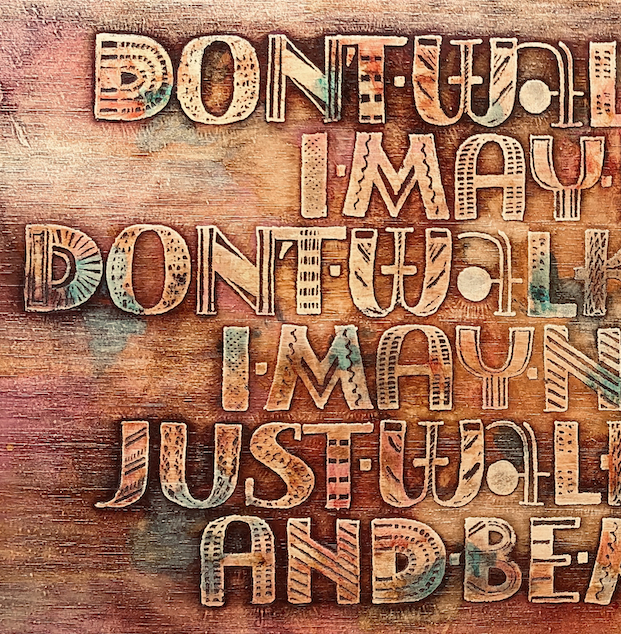 DON'T·WAL
I·MAY·
DON'T·WALK
I·MAY·N
JUST·WALK
AND·BEA